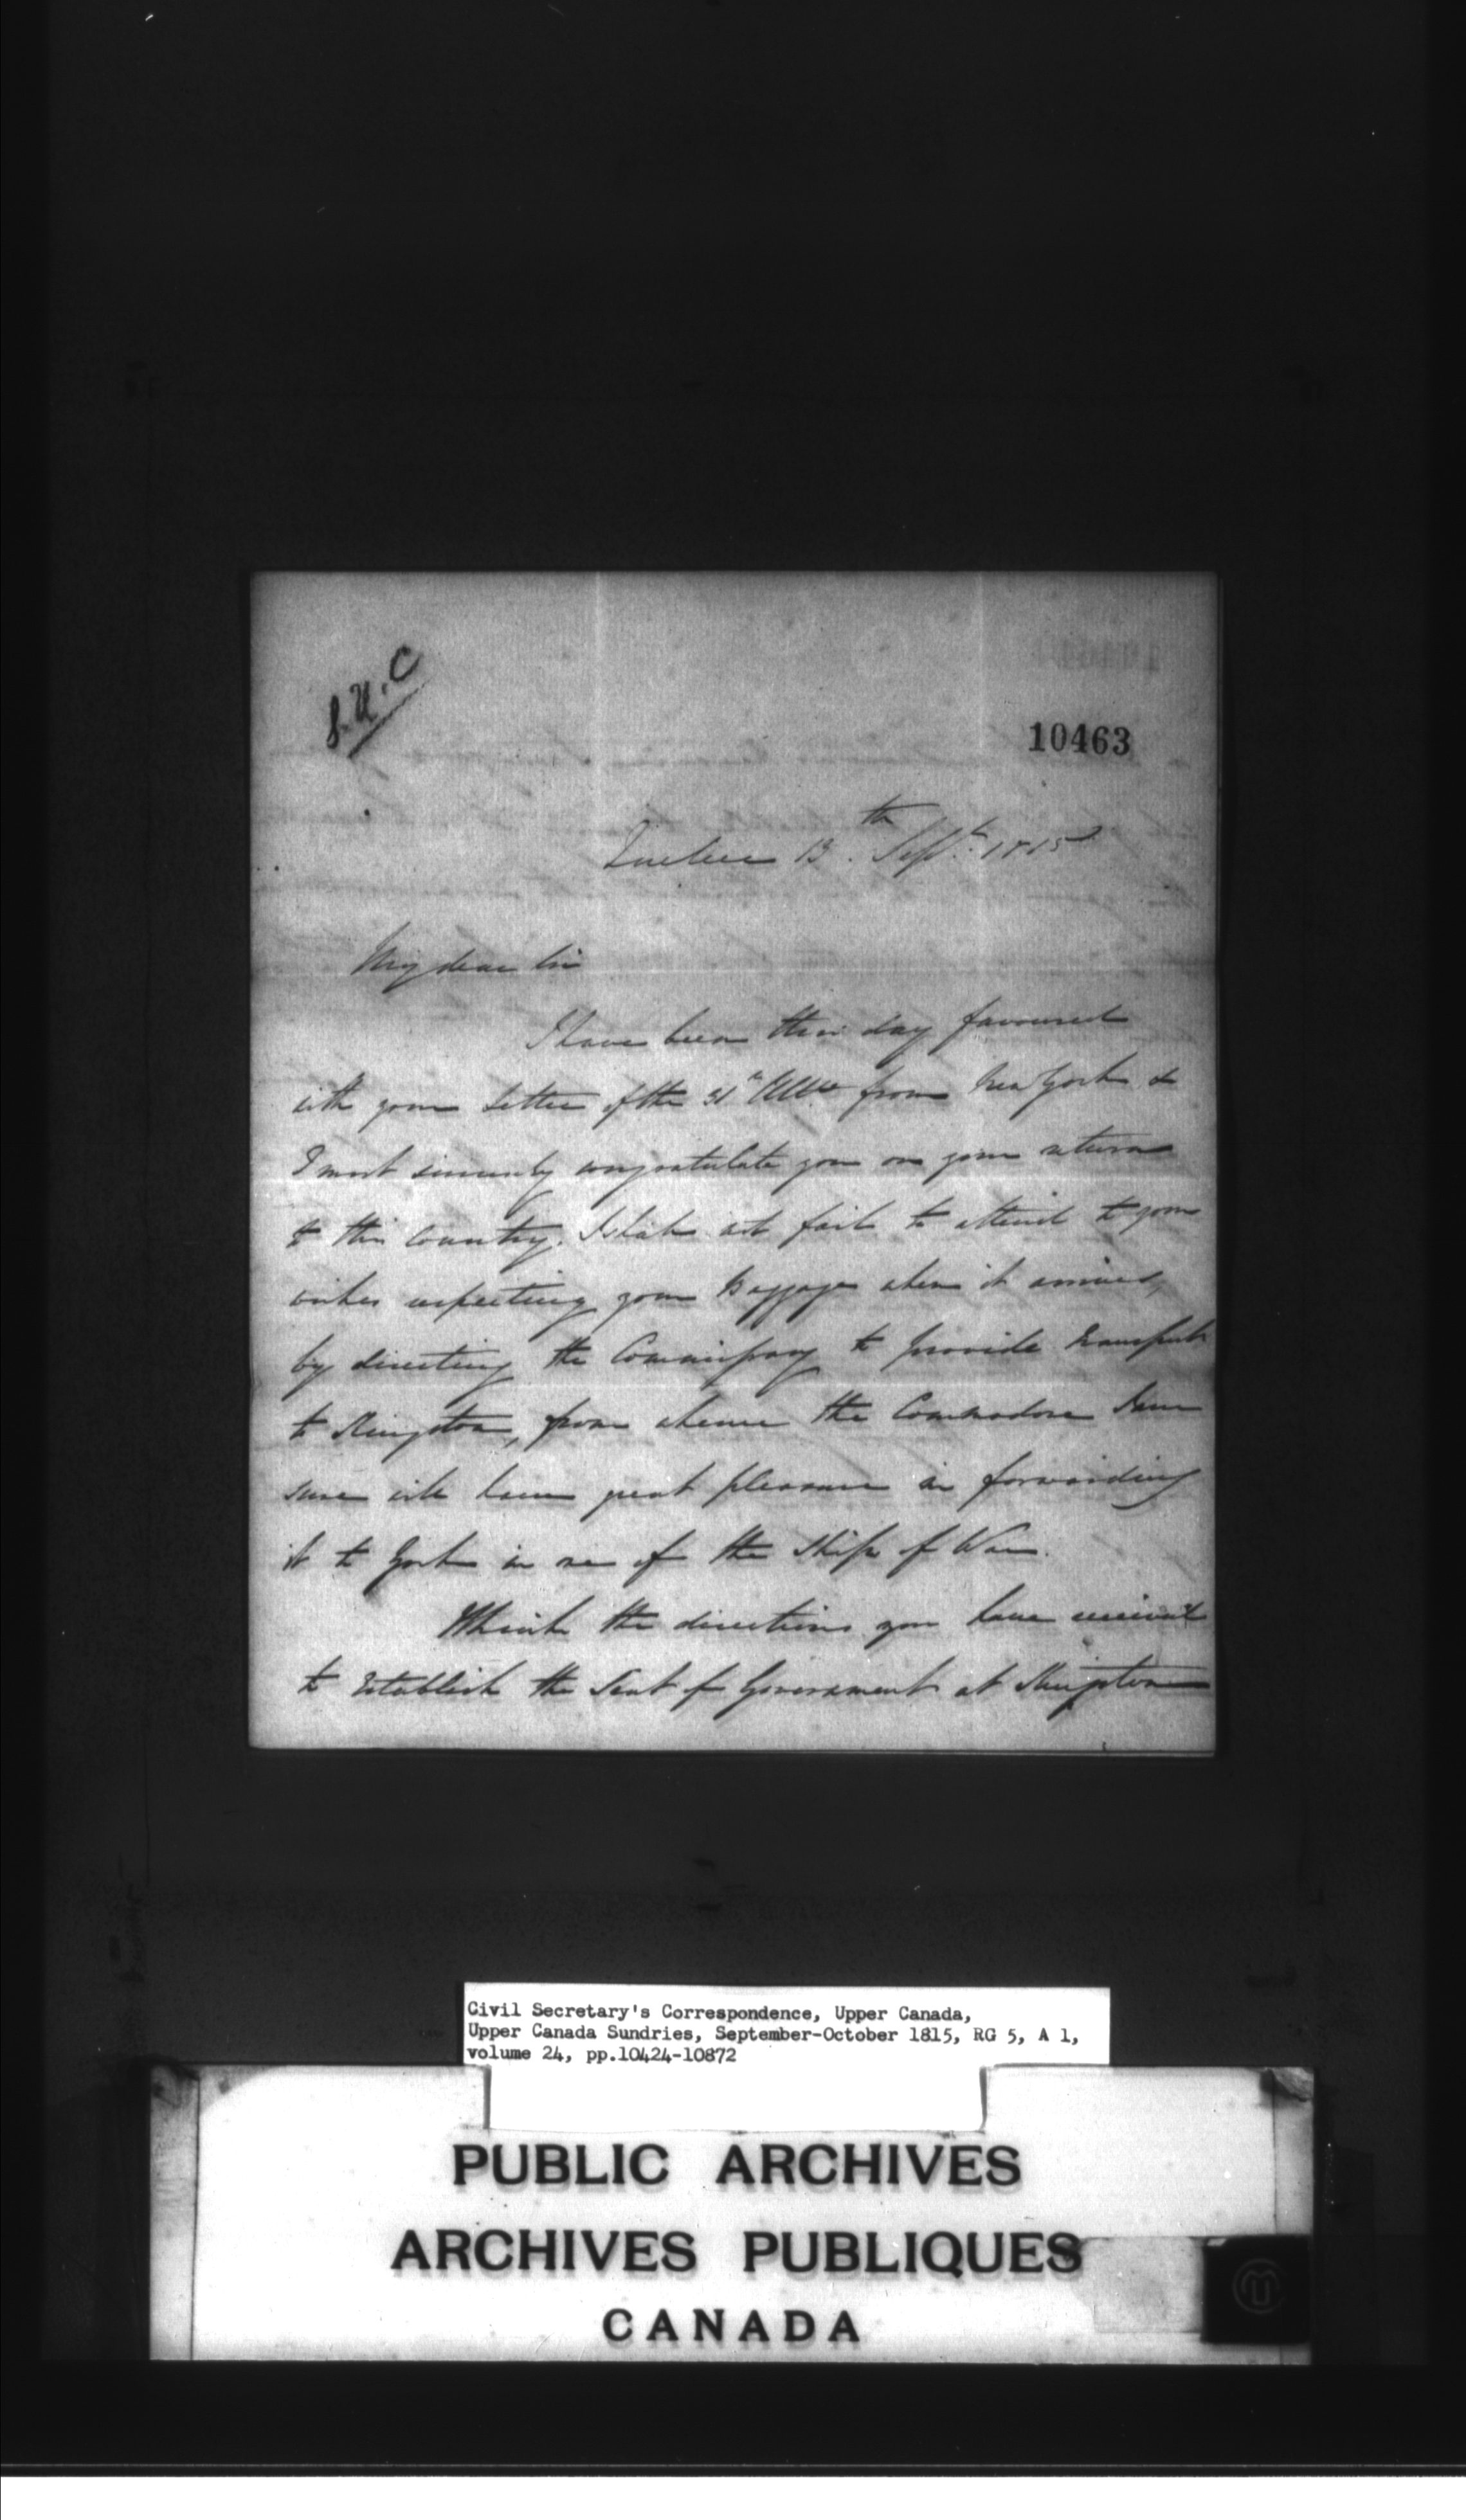 S.U.C
10463
Quebec 13th Sept. 1815
My dear Sir
I have been this day favoured
with your Letter of the 31st Ulto from New York &
I most sincerely congratulate you on your return
to this Country. I shall not fail to attend to your
wishes respecting your Baggage when it arrives,
by directing the Commissary to provide transport
to Kingston, from whence the Commodore I am
sure will have great pleasure in forwarding
it to York in one of the Ships of War.
I think the directions you have received
to establish the Seat of Government at Kingston
Civil Secretary's Correspondence, Upper Canada,
Upper Canada Sundries, September-October 1815, RG 5, A 1,
volume 24, pp.10424-10872
PUBLIC ARCHIVES
ARCHIVES PUBLIQUES
CANADA